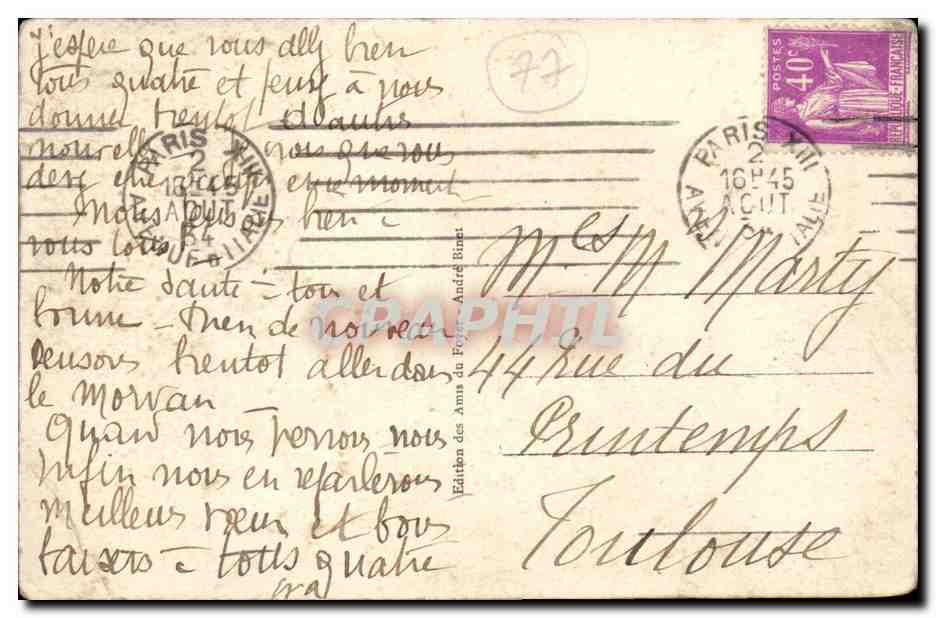 j'espere que vous allez bien
tous quatre et pensez à nous
donner bientot d'autres
nouvelles
en ce moment
Nous pensons bien à
vous tous
Notre santé - tous et
bonne - rien de nouveau
pensons bientot aller dans
le Morvan
Quand nous nous
enfin nous en reparlerons
Meilleurs voeux et bons
baisers à tous quatre
77
POSTES
40c
REPUBLIQUE FRANÇAISE
PARIS XIII
2
16H45
AOUT
34
AV. D'ITALIE
PARIS XIII
2
16H45
AOUT
ITALIE
Edition des Amis du Foyer André Binet
CPAPHIL
Mes M Marty
44 Rue du
Printemps
Toulouse